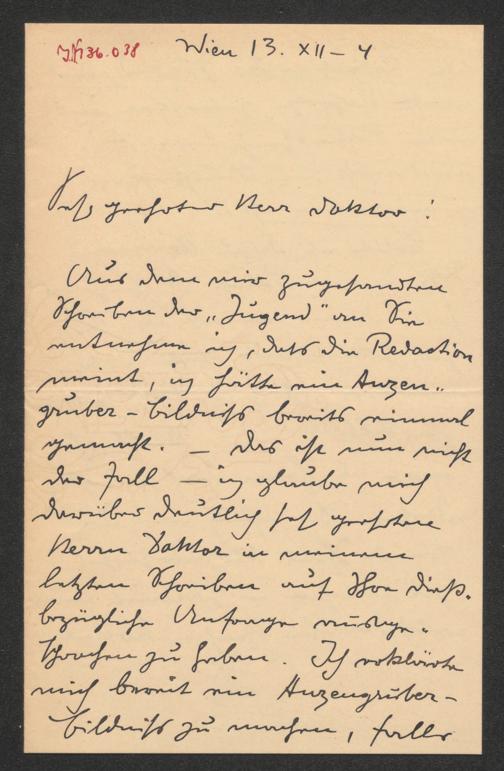 JN 136.038
Wien 13. XII – 4
Sehr geehrter Herr Doktor!
Aus dem mir zugesandten
Schreiben der „Jugend" an Sie
entnehme ich, dass die Redaction
meint, ich hätte ein Anzen„
gruber – bildniss bereits einmal
gemacht. – Das ist nun nicht
der Fall – ich glaube mich
darüber deutlich sehr geehrter
Herrn Doktor in meinem
letzten Schreiben auf Ihre dieß„
bezügliche Anfrage ausge„
sprochen zu haben. Ich erklärte
mich bereit ein Anzengruber –
bildniss zu machen, falls